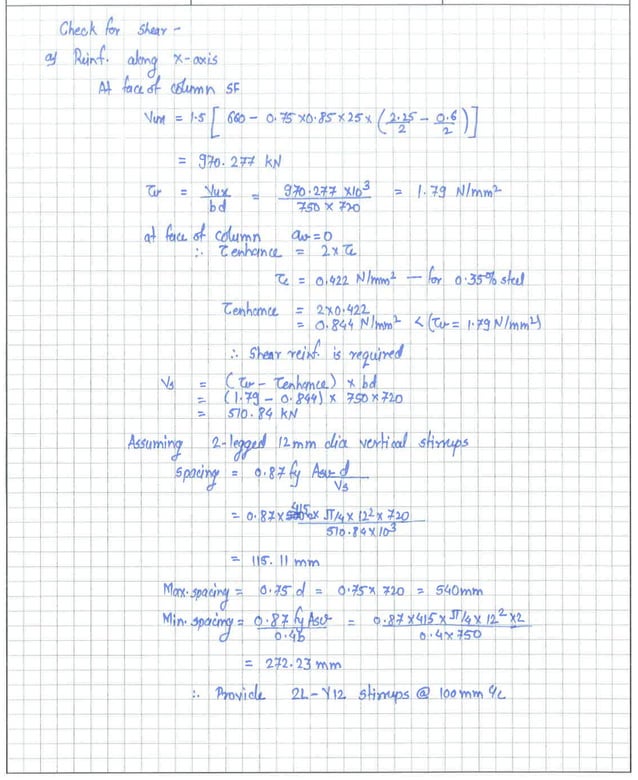 Check for shear -
a) Reinf. along x-axis
At face of column SF
Vux = 1.5 [ 660 - 0.75 x 0.85 x 25 x ( 2.25/2 - 0.6/2 ) ]
= 970.277 kN
τv = Vux/bd = 970.277 x10³ / 750 x 720 = 1.79 N/mm²
at face of column av = 0
∴ τenhance = 2 x τc
τc = 0.422 N/mm² — for 0.35% steel
τenhance = 2x0.422
= 0.844 N/mm² < (τv = 1.79 N/mm²)
∴ Shear reinf. is required
Vs = (τv - τenhance) x bd
= (1.79 - 0.844) x 750 x 720
= 510.84 kN
Assuming 2-legged 12mm dia vertical stirrups
Spacing = 0.87 fy Asv d / Vs
= 0.87 x 415 x π/4 x 12² x 720 / 510.84 x 10³
= 115.11 mm
Max. spacing = 0.75 d = 0.75 x 720 = 540mm
Min. spacing = 0.87 fy Asv / 0.4b = 0.87 x 415 x π/4 x 12² x 2 / 0.4 x 750
= 272.23 mm
∴ Provide 2L-Y12 stirrups @ 100mm c/c